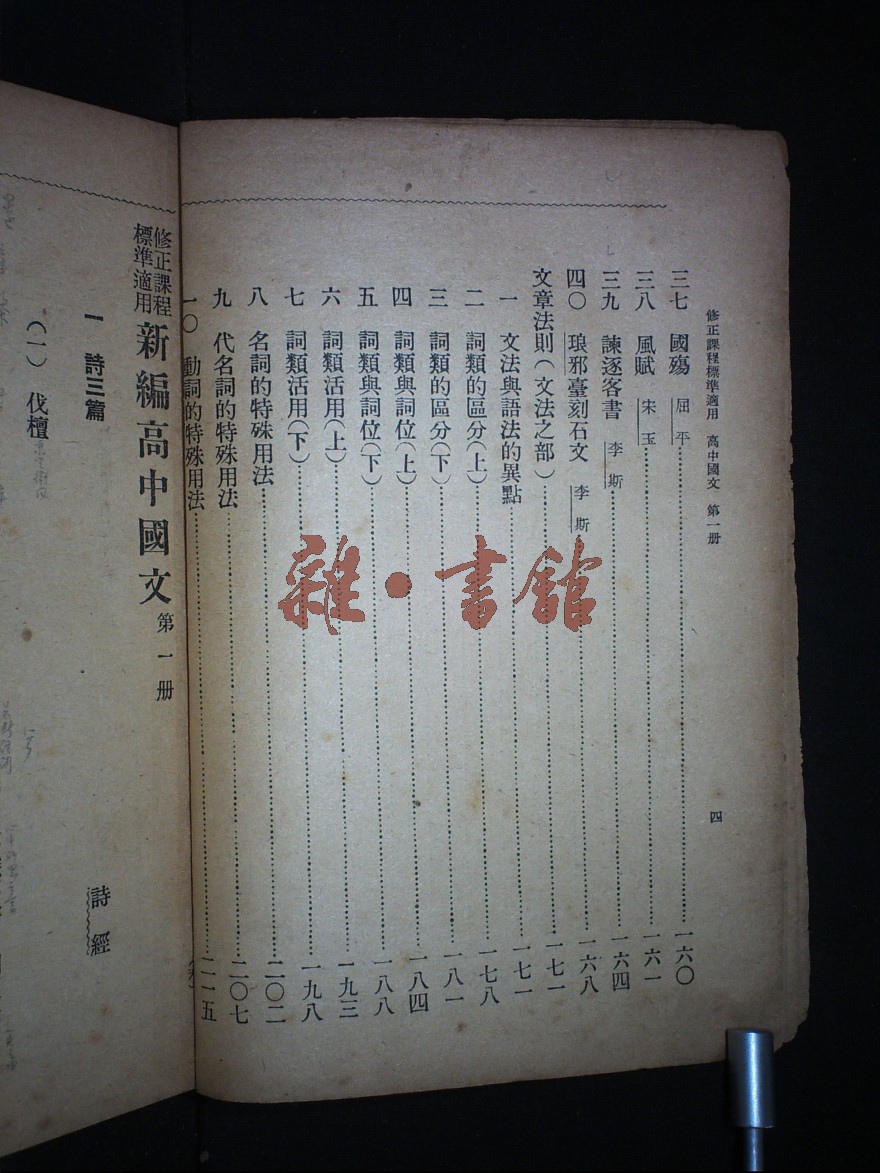 修正課程標準適用 高中國文 第一册
四
三七 國殤 屈平 一六〇
三八 風賦 宋玉 一六一
三九 諫逐客書 李斯 一六四
四〇 琅邪臺刻石文 李斯 一六八
文章法則(文法之部) 一七一
一 文法與語法的異點 一七一
二 詞類的區分(上) 一七八
三 詞類的區分(下) 一八一
四 詞類與詞位(上) 一八四
五 詞類與詞位(下) 一八八
六 詞類活用(上) 一九三
七 詞類活用(下) 一九八
八 名詞的特殊用法 二〇二
九 代名詞的特殊用法 二〇七
一〇 動詞的特殊用法 二一五
修正課程標準適用 新編高中國文 第一册
一 詩三篇 詩經
(一) 伐檀
雜·書館